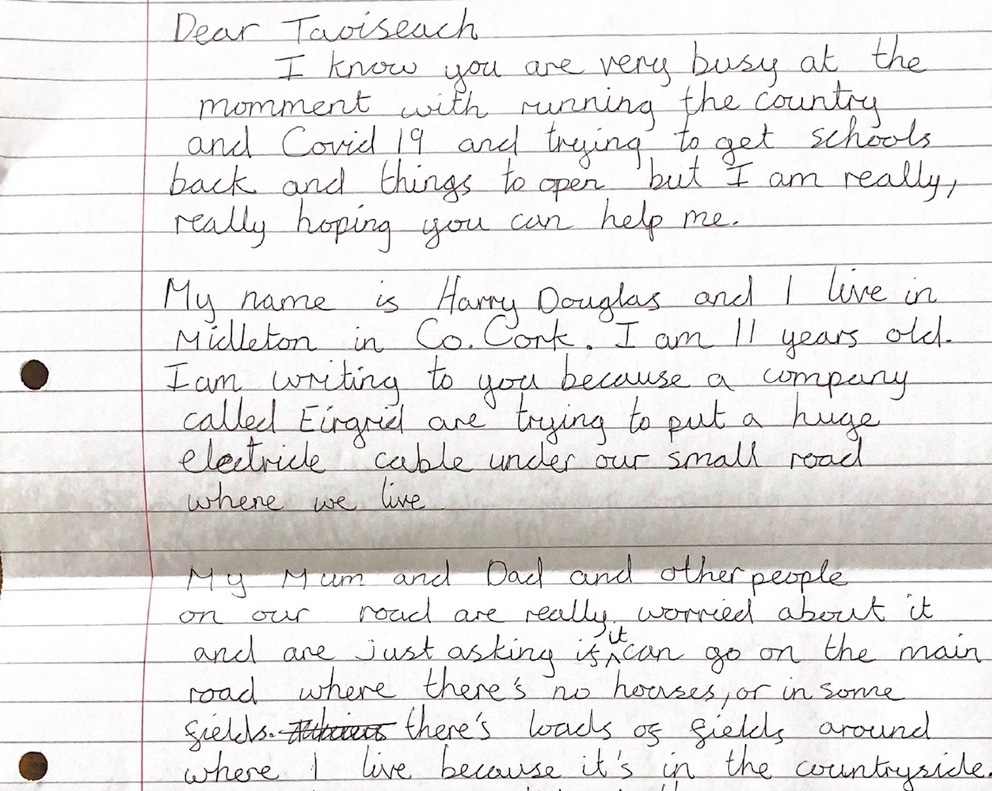 Dear Taoiseach
I know you are very busy at the
momment with running the country
and Covid 19 and trying to get schools
back and things to open but I am really,
really hoping you can help me.
My name is Harry Douglas and I live in
Midleton in Co. Cork. I am 11 years old.
I am writing to you because a company
called Eirgrid are trying to put a huge
electricle cable under our small road
where we live
My Mum and Dad and other people
on our road are really worried about it
and are just asking if it can go on the main
road where there's no houses, or in some
fields. there's loads of fields around
where I live because it's in the countryside.